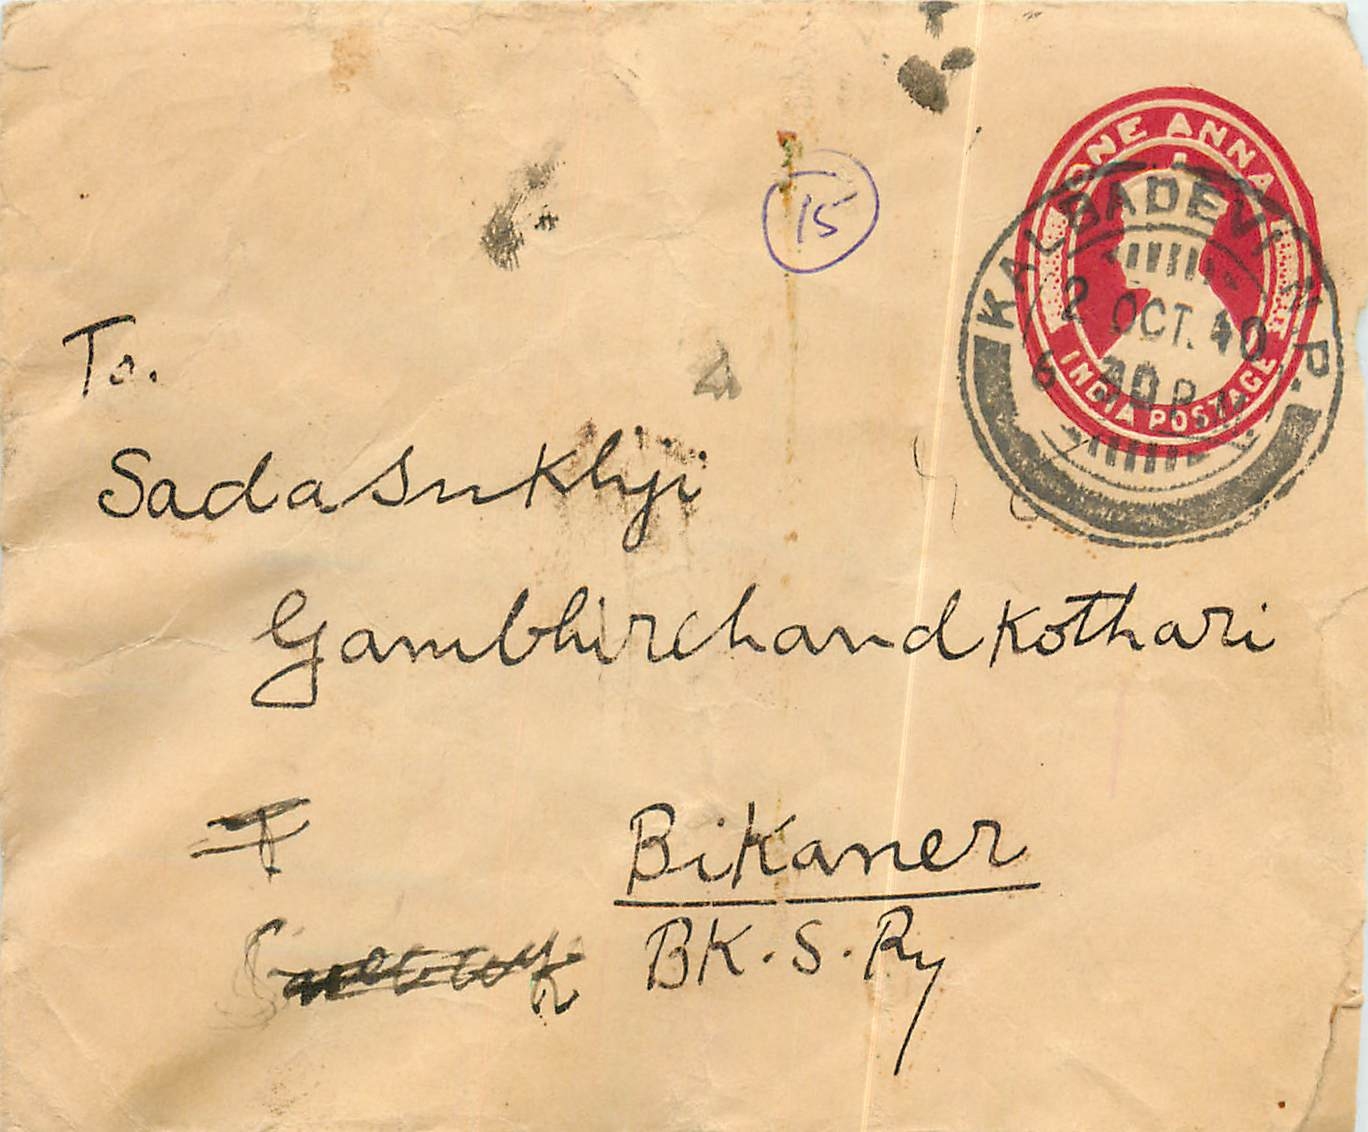 ONE ANNA
INDIA POSTAGE
KALBADEVI N.P.
2 OCT. 40
6 30 P
15
To.
Sadasukhji
Gambhirchand Kothari
Bikaner
BK. S. Ry